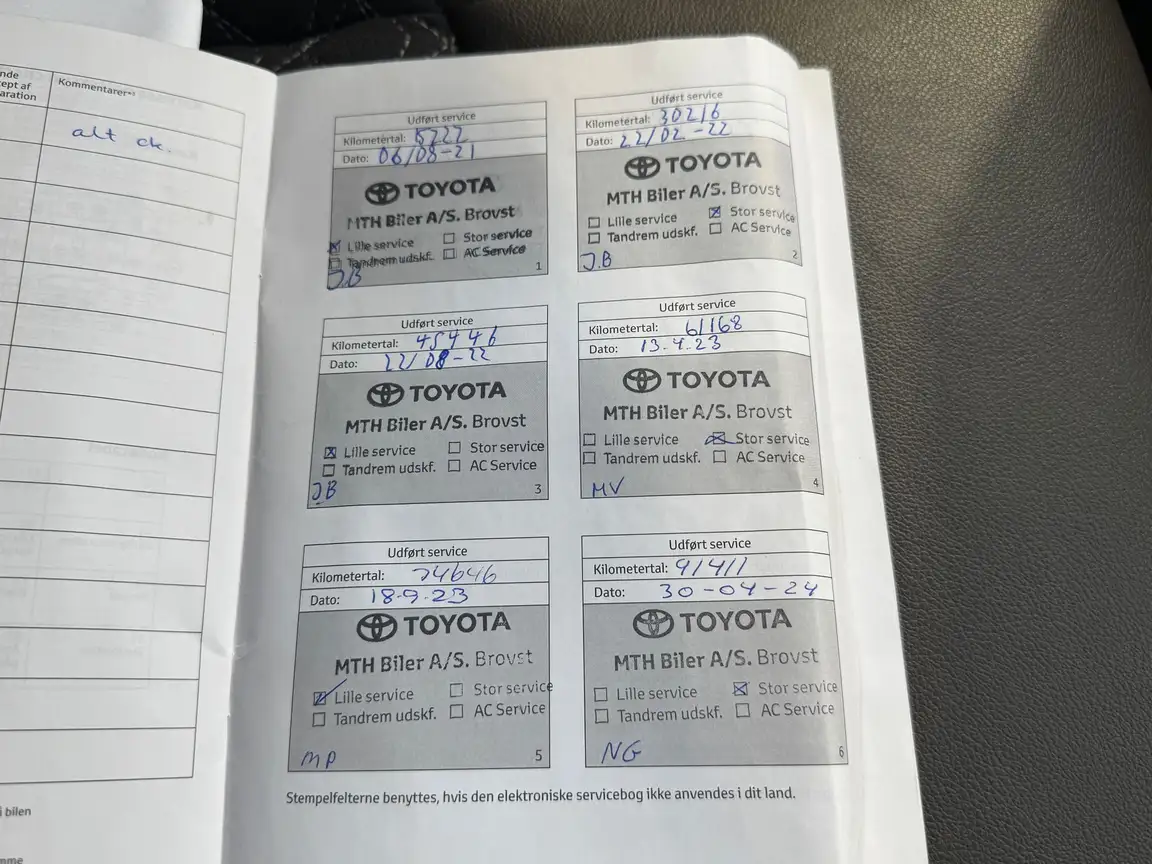 Kommentarer*¹
alt ok.
Udført service
Kilometertal:
Dato: 06/08-21
TOYOTA
MTH Biler A/S. Brovst
Lille service
Stor service
Tandrem udskf.
AC Service
J.B
1
Udført service
Kilometertal: 30216
Dato: 22/02-22
TOYOTA
MTH Biler A/S. Brovst
Lille service
Stor service
Tandrem udskf.
AC Service
J.B
2
Udført service
Kilometertal: 45446
Dato: 22/08-22
TOYOTA
MTH Biler A/S. Brovst
Lille service
Stor service
Tandrem udskf.
AC Service
JB
3
Udført service
Kilometertal: 61168
Dato: 13.4.23
TOYOTA
MTH Biler A/S. Brovst
Lille service
Stor service
Tandrem udskf.
AC Service
MV
4
Udført service
Kilometertal: 74646
Dato: 18.9.23
TOYOTA
MTH Biler A/S. Brovst
Lille service
Stor service
Tandrem udskf.
AC Service
MP
5
Udført service
Kilometertal: 91411
Dato: 30-04-24
TOYOTA
MTH Biler A/S. Brovst
Lille service
Stor service
Tandrem udskf.
AC Service
NG
6
Stempelfelterne benyttes, hvis den elektroniske servicebog ikke anvendes i dit land.
i bilen